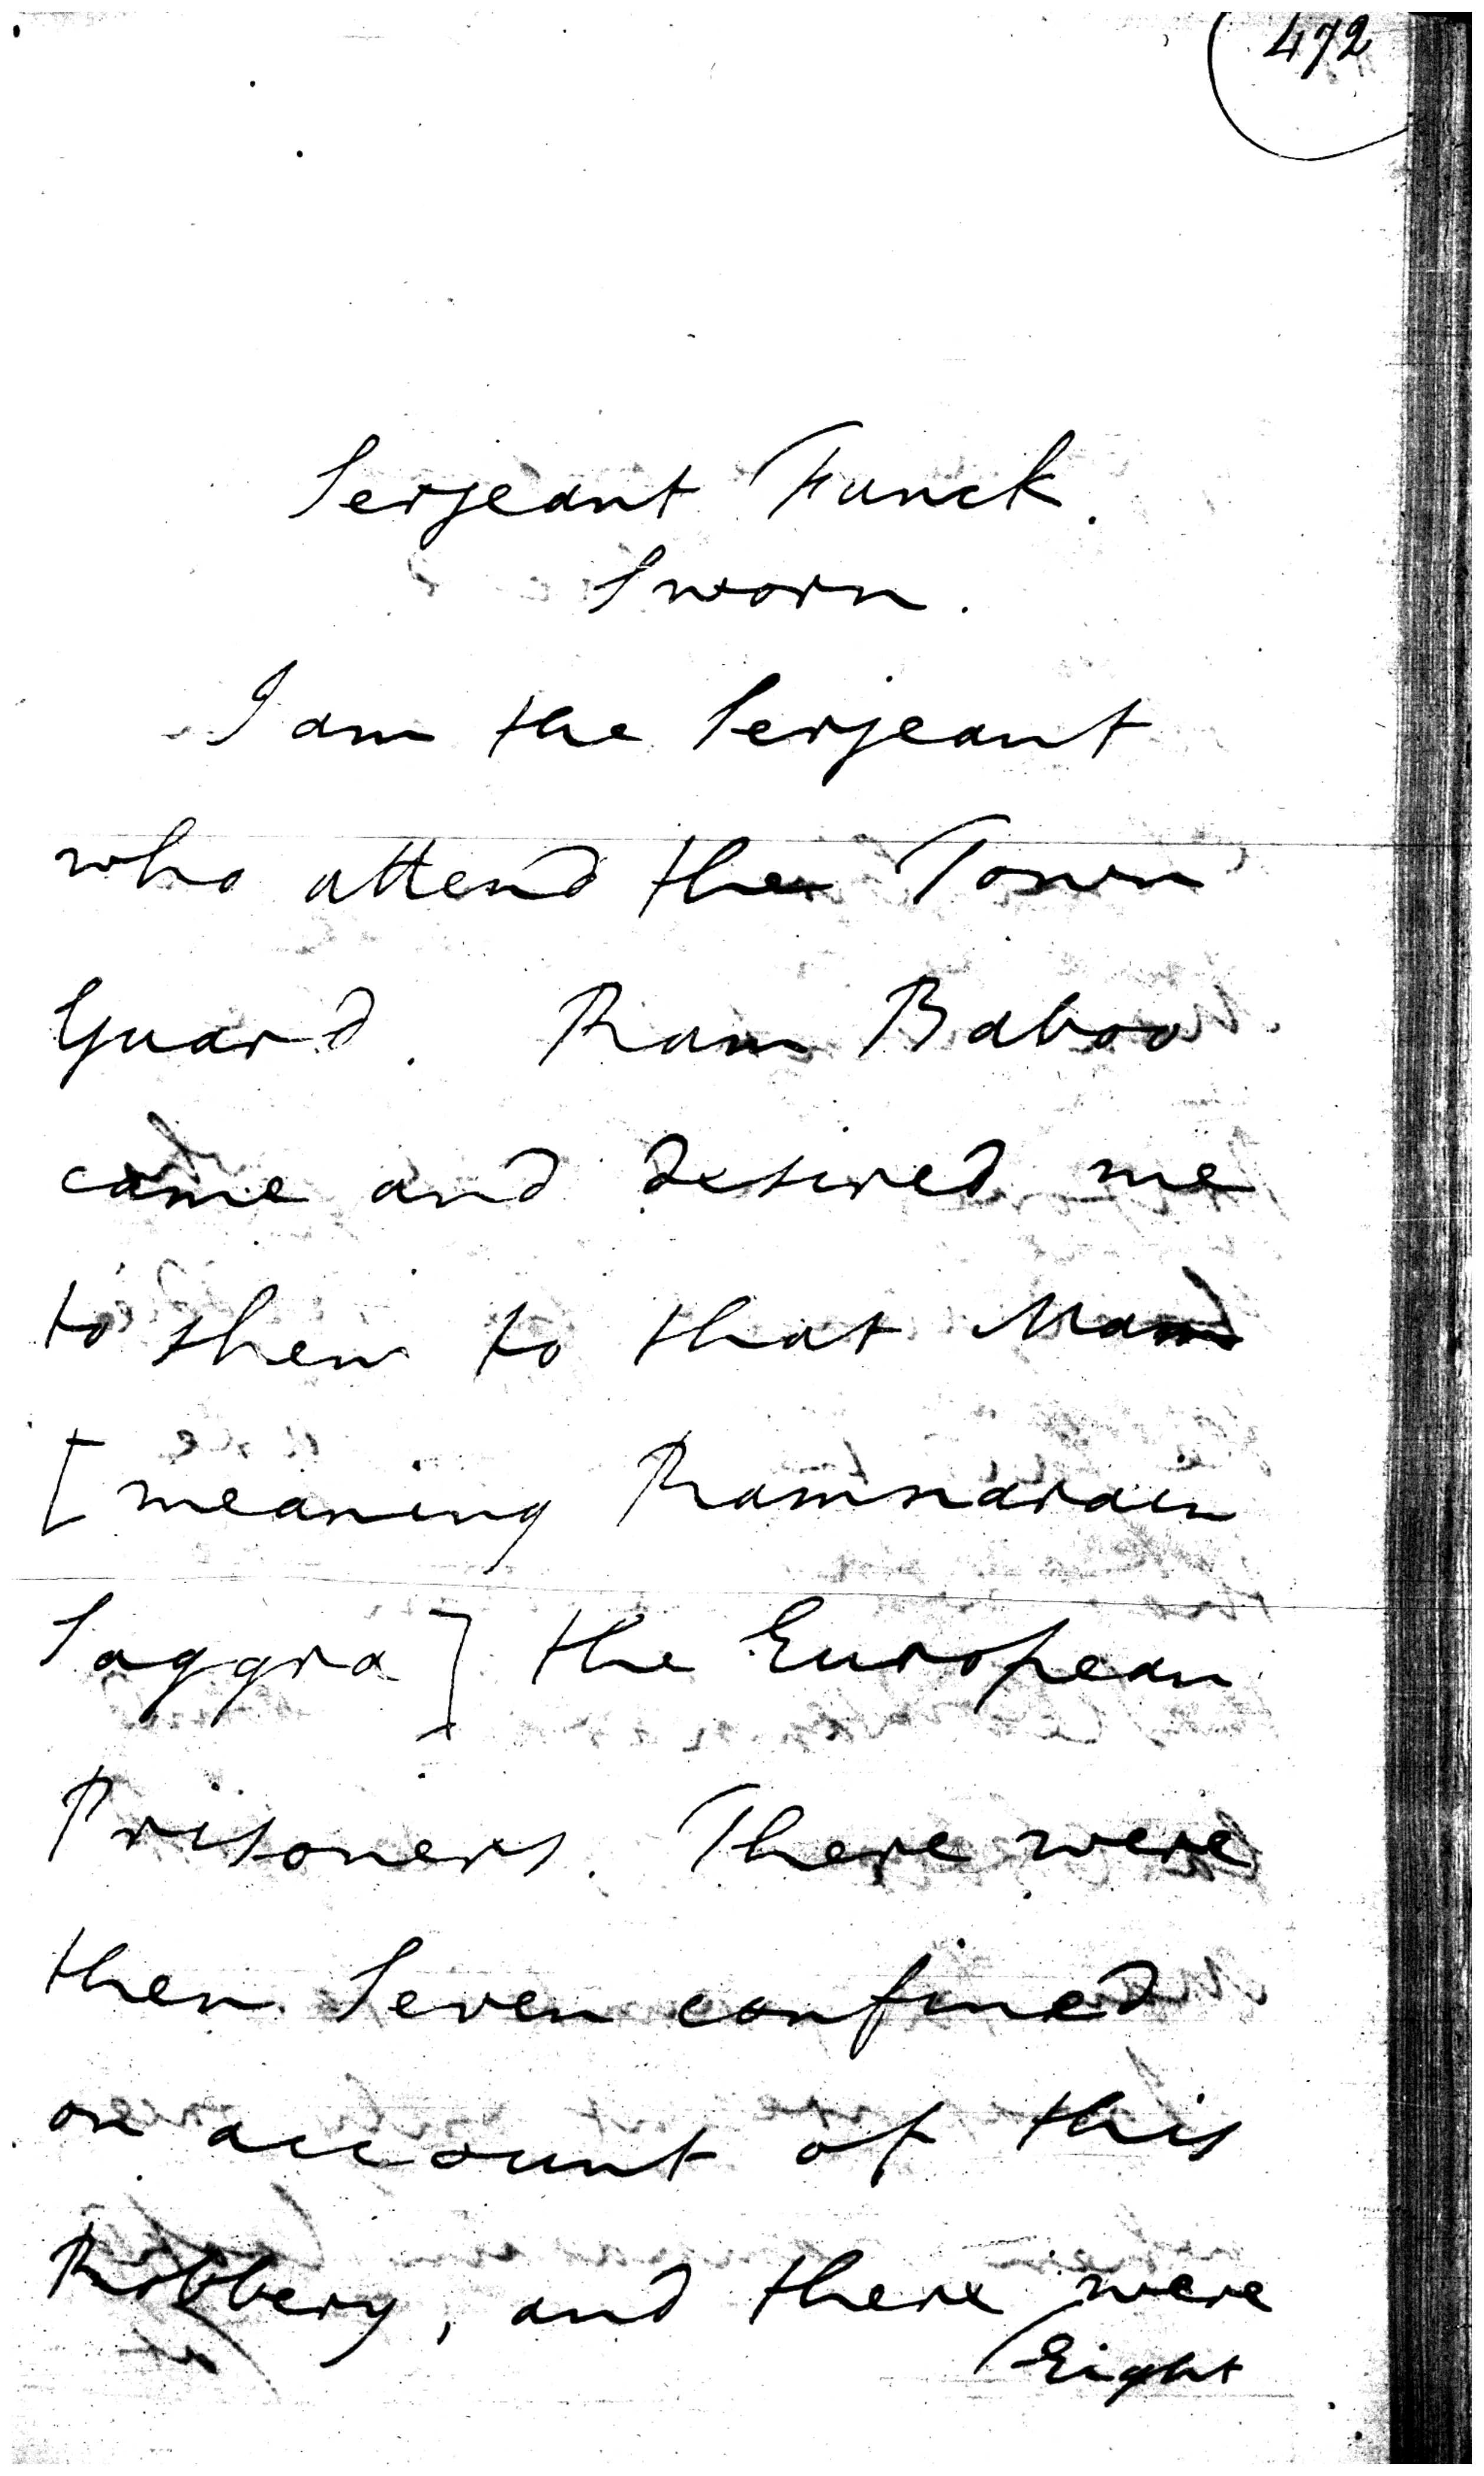 472
Serjeant Funck.
Sworn.
I am the Serjeant
who attend the Town
Guard. Ram Baboo
came and desired me
to shew to that Man
[meaning Ramnarain
Saggra] the European
Prisoners. There were
then Seven confined
on account of this
Robbery, and there were
Eight